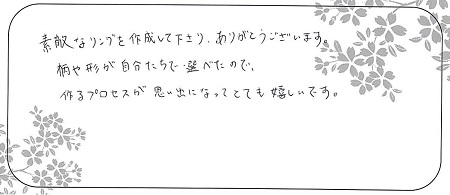 素敵なリングを作成して下さり、ありがとうございます。
柄や形が自分たちで選べたので、
作るプロセスが思い出になってとても嬉しいです。